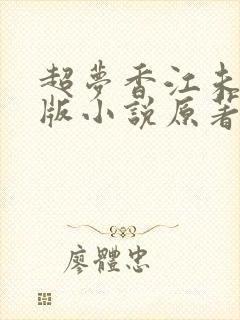 超夢香江未
版小說原著
廖體忠